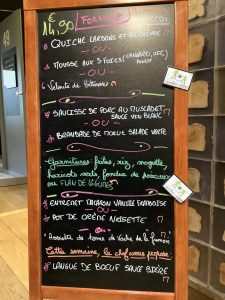 €
14,90 FORMULE MIDI
QUICHE LARDONS ET
- OU -
MOUSSE AUX 3 FOIES (CANARD, OIE,
POULET
- OU -
Velouté de
SAUCISSE DE PORC AU MUSCADET
SAUCE VIN BLANC
- OU -
BRANDADE DE MORUE SALADE VERTE
Garnitures: frites, riz,
haricots verts, fondue de poireaux
ou FLAN DE LÉGUMES
ENTREMET VANILLE FRAMBOISE
- OU -
POT DE CRÈME NOISETTE
- ou -
Assiette de tome de vache de la
Cette semaine, le chef vous propose:
LANGUE DE BOEUF SAUCE BIÈRE